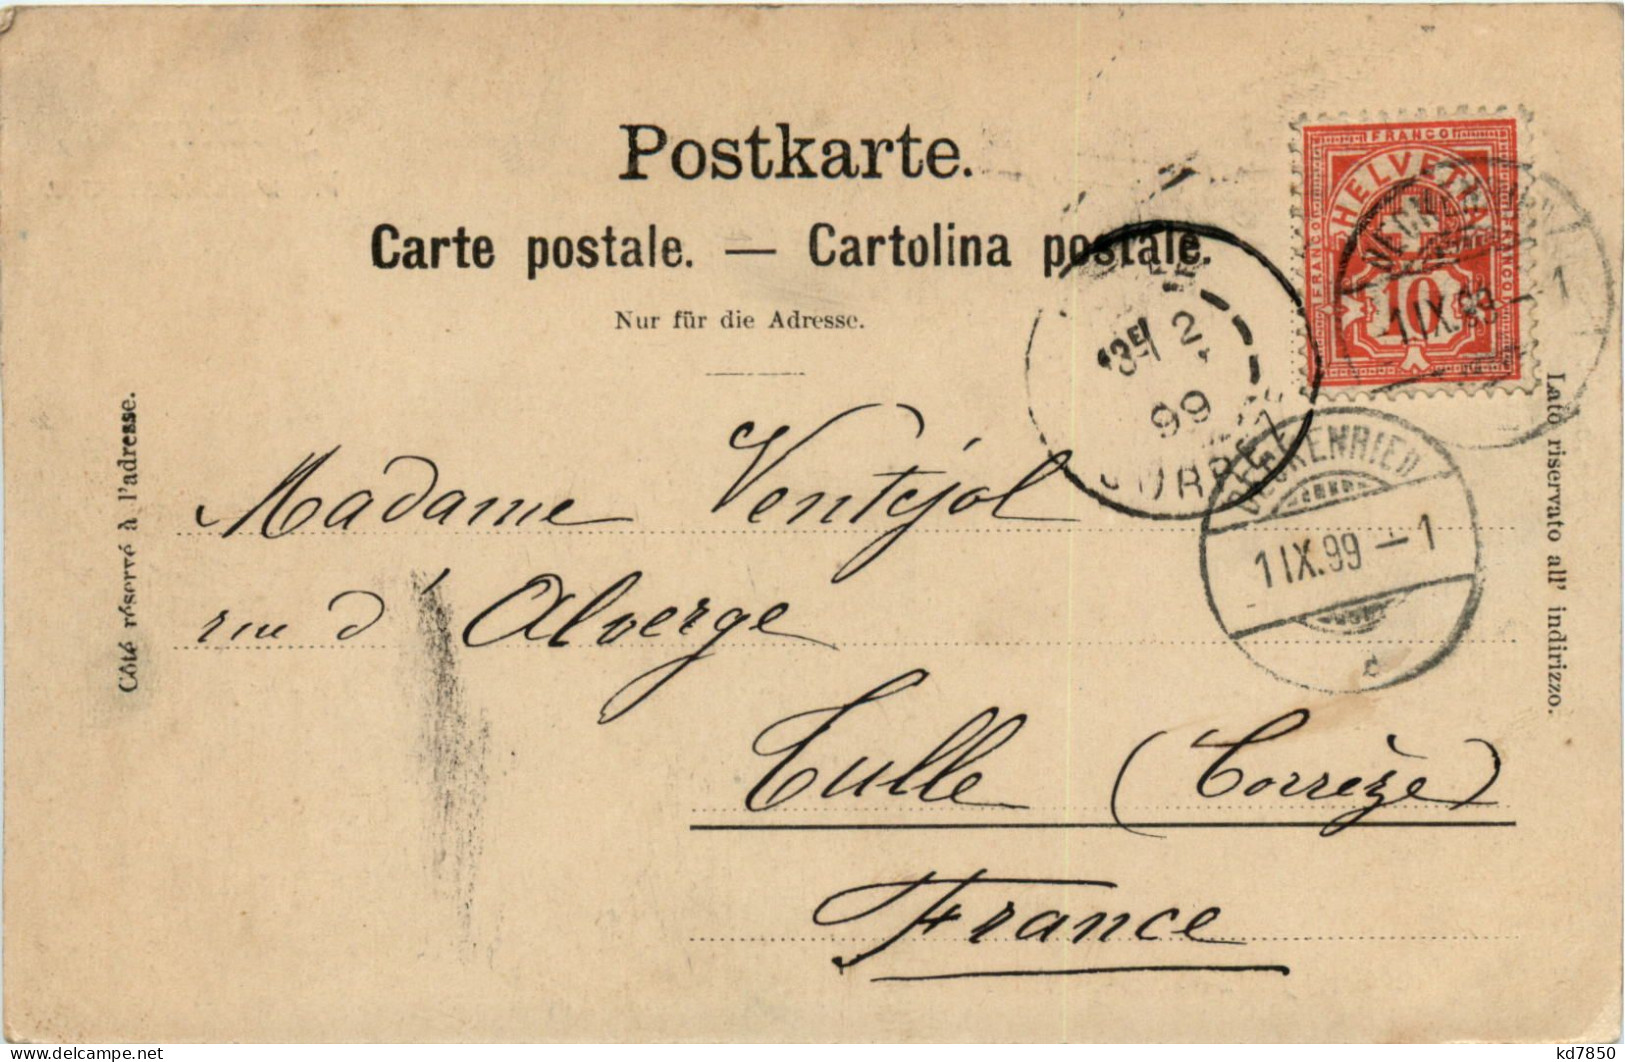 Postkarte.
Carte postale. — Cartolina postale.
Nur für die Adresse.
FRANCO
HELVETIA
FRANCO
FRANCO
10
1 IX.99 – 1
2
99
BECKENRIED
1 IX.99 – 1
Côté réservé à l'adresse.
Lato riservato all' indirizzo.
Madame Ventejol
rue d'Alverge
Tulle (Corrèze)
France
delcampe.net
kd7850